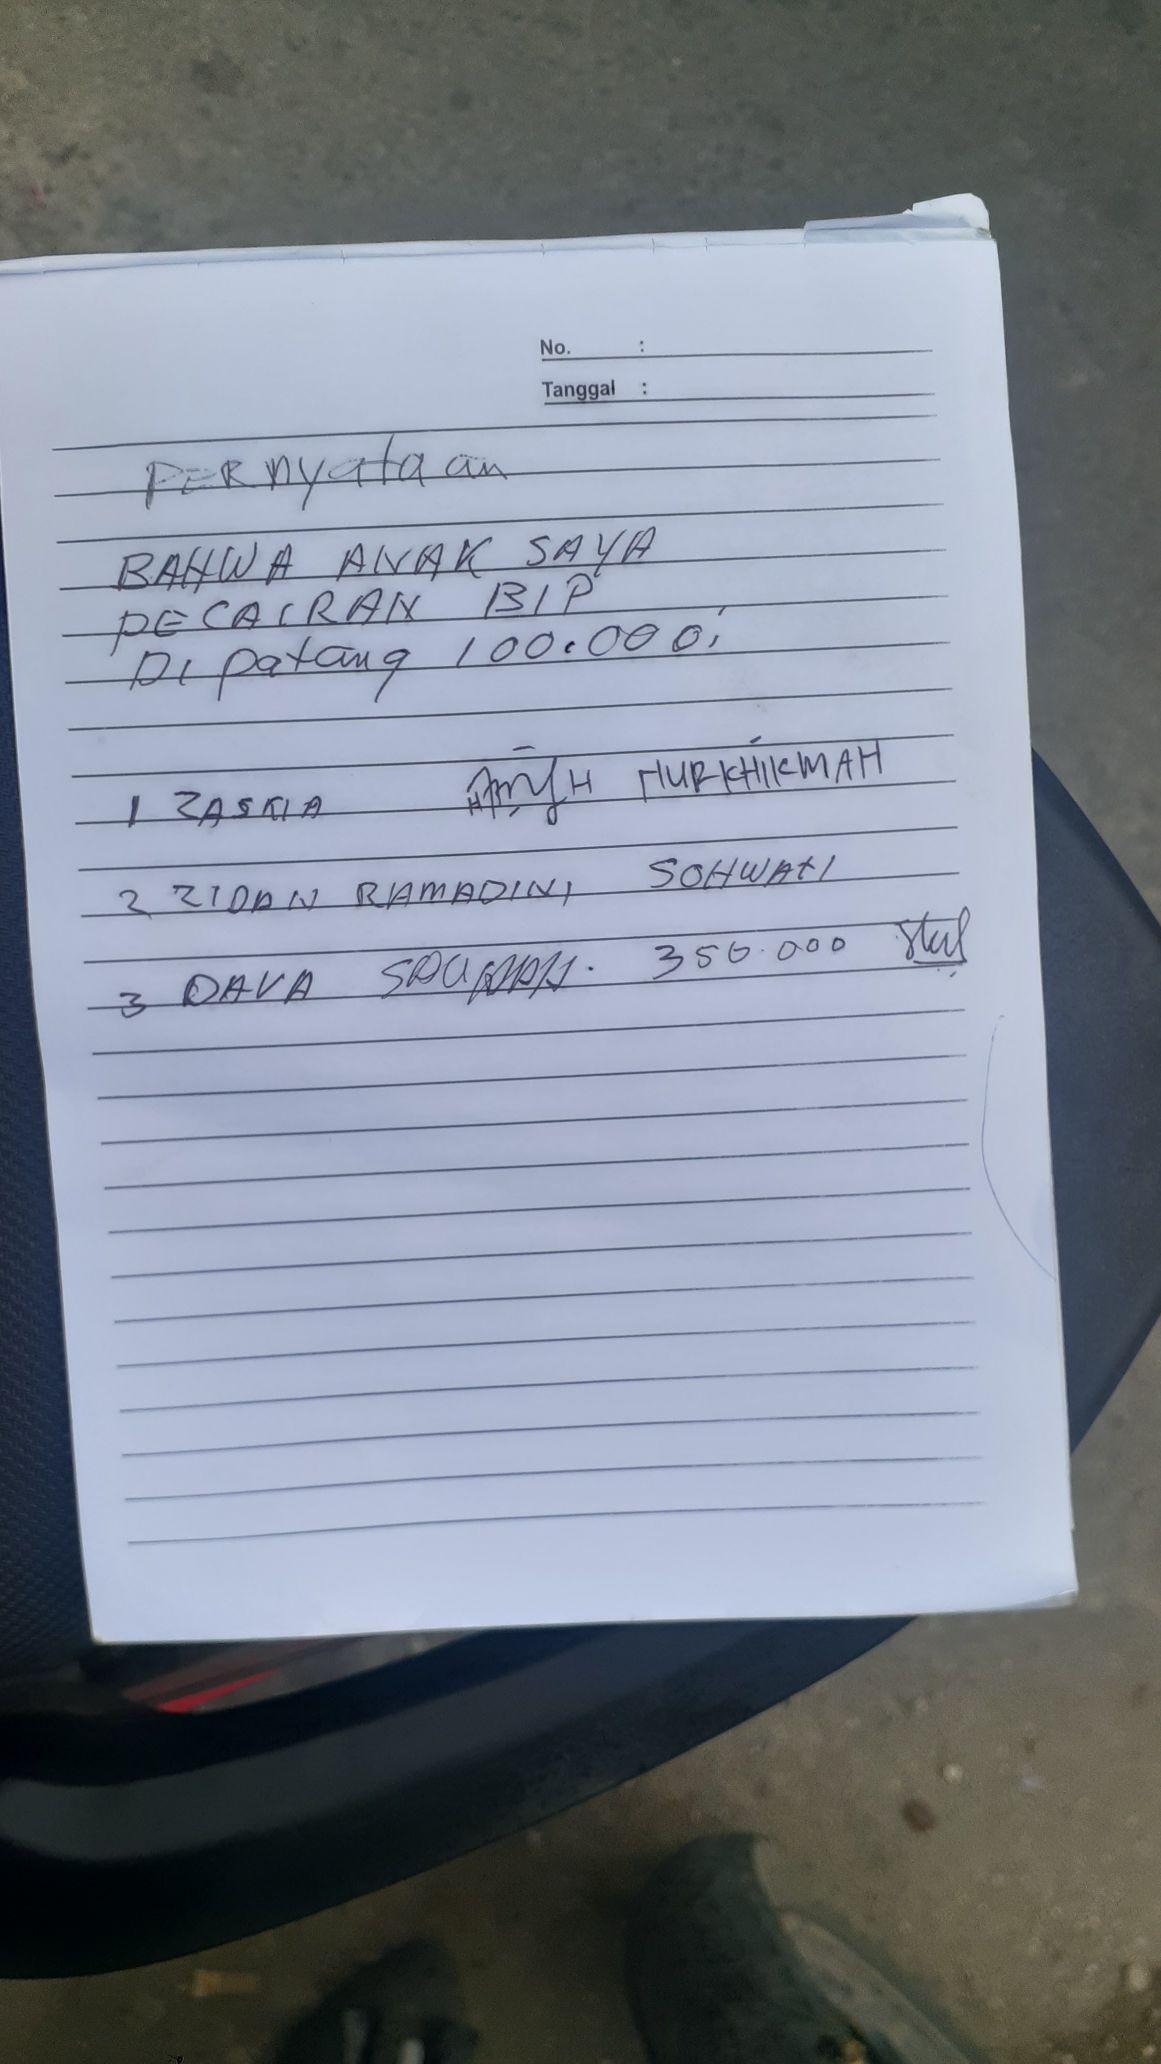 No. :
Tanggal :
PERNyataan
BAHWA ANAK SAYA
PECAIRAN BIP
Di patang 100.000,
1 ZASKIA NURKHIKMAH
2 ZIDAN RAMADINI SOHWATI
3 DAVA 350.000